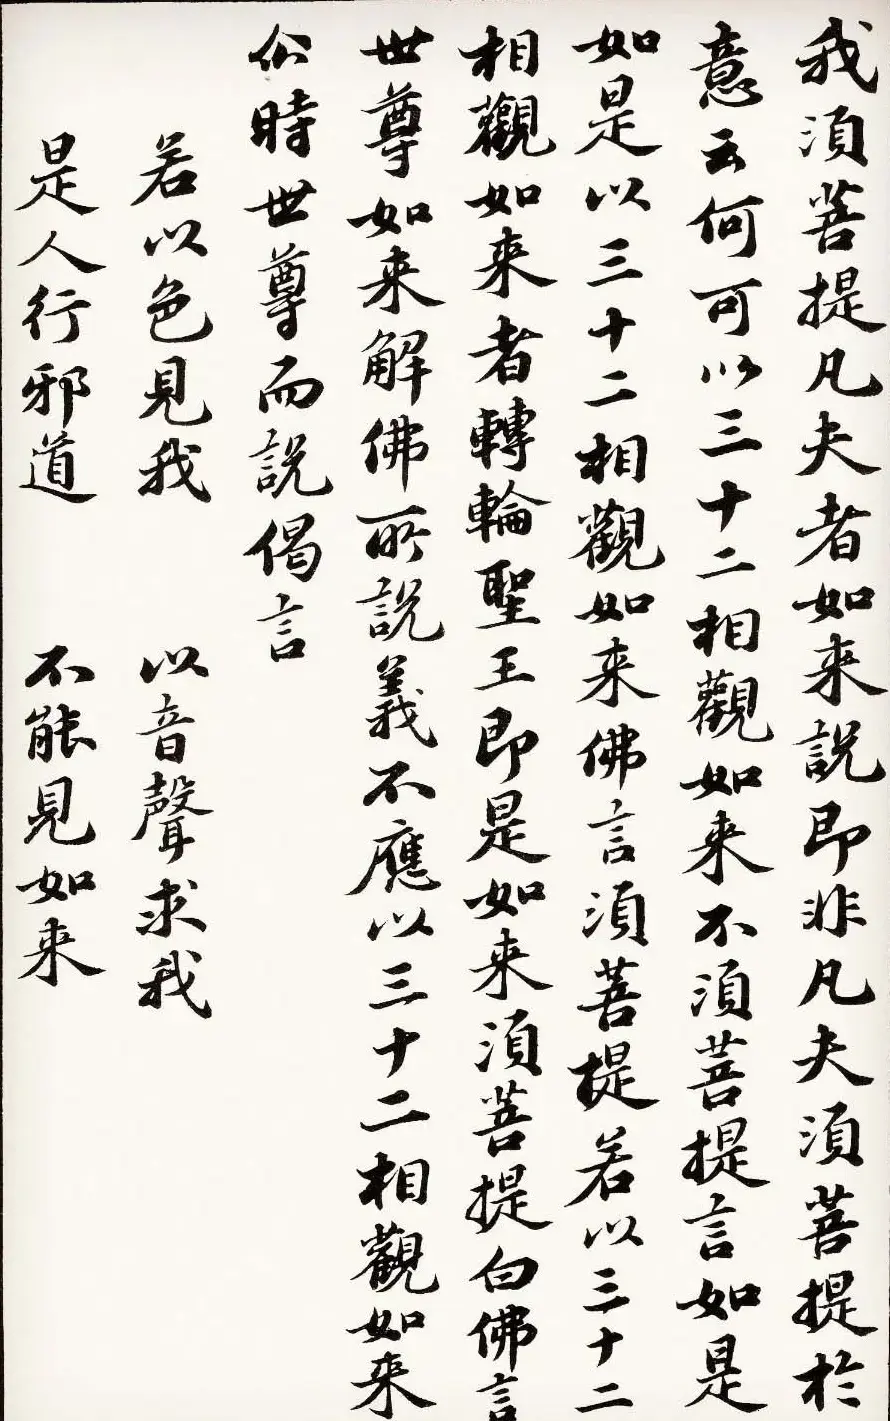 我須菩提凡夫者如来説即非凡夫須菩提於
意云何可以三十二相觀如来不須菩提言如是
如是以三十二相觀如来佛言須菩提若以三十二
相觀如来者轉輪聖王即是如来須菩提白佛言
世尊如来解佛所説義不應以三十二相觀如来
尒時世尊而説偈言
若以色見我 以音聲求我
是人行邪道 不能見如来